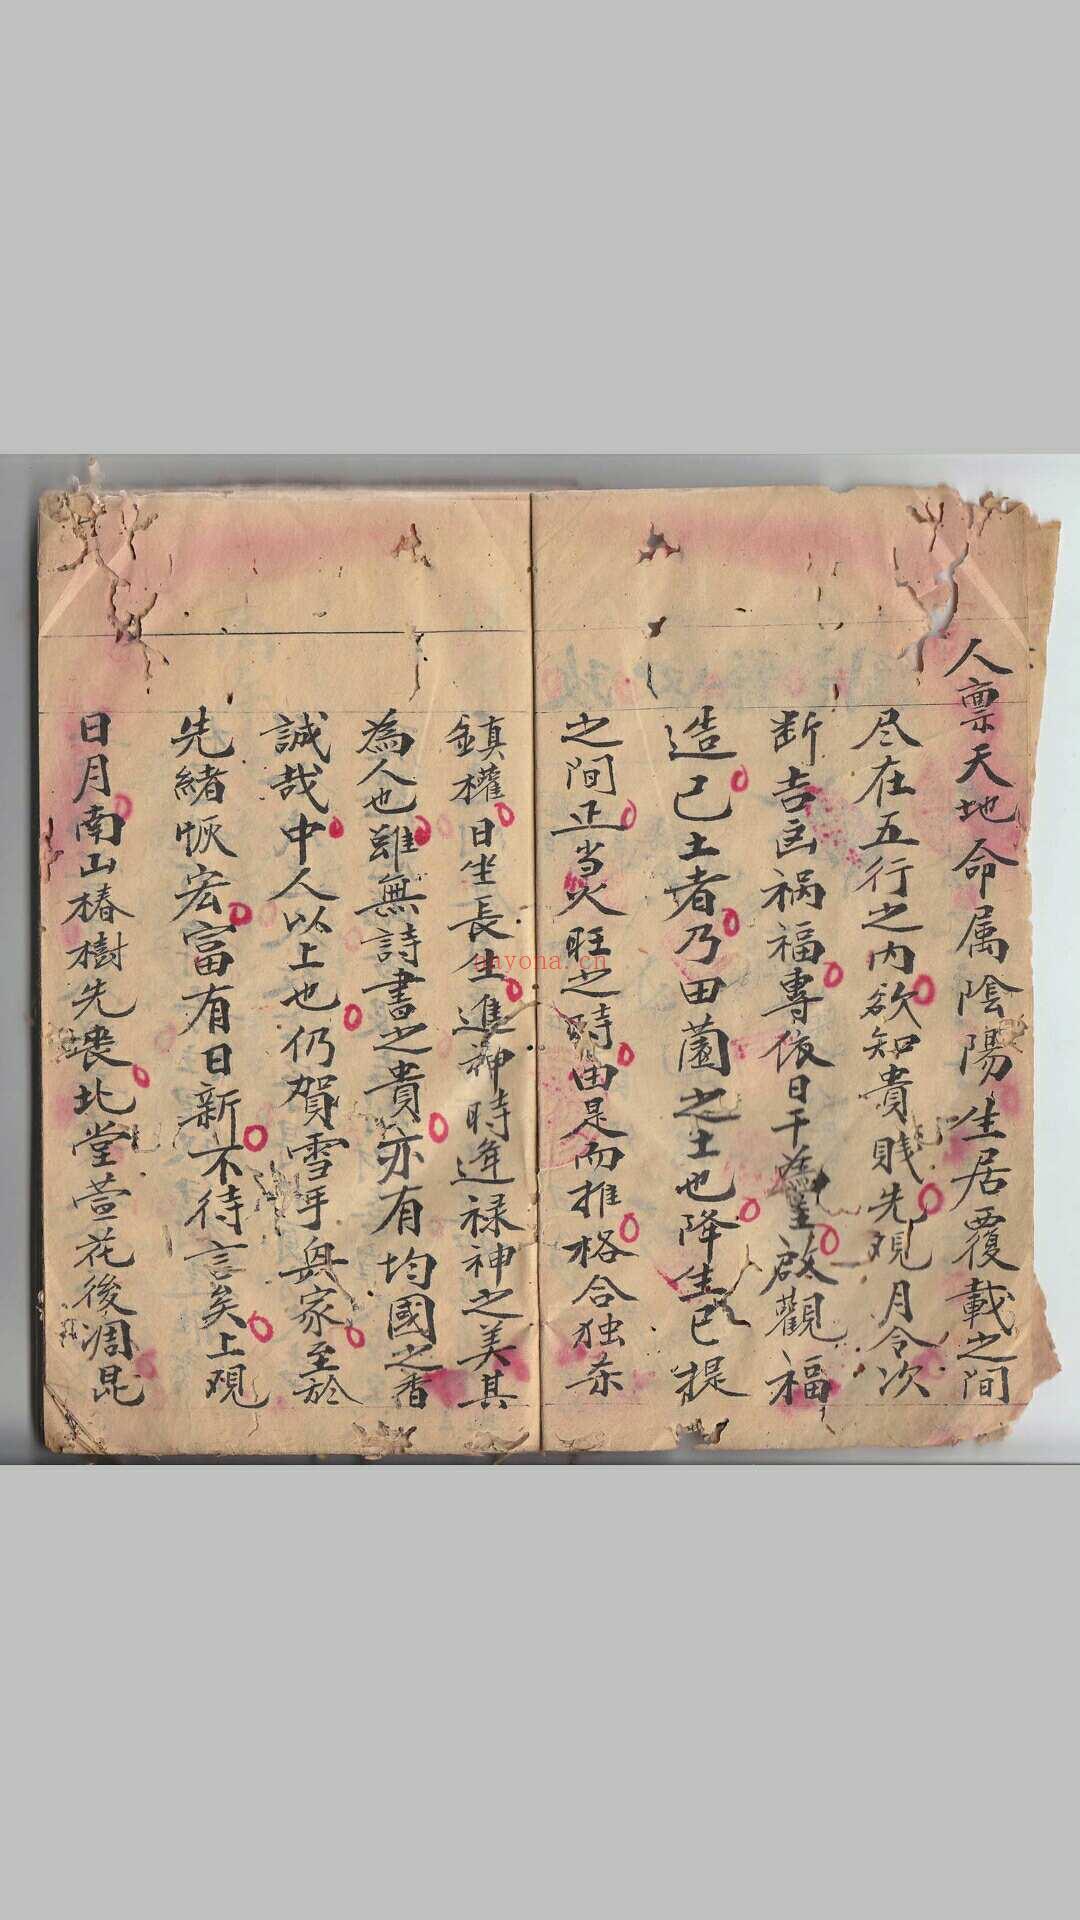 人禀天地命属陰陽生居覆載之間
尽在五行之内欲知貴賎先观月令次
断吉凶祸福專依日干為主啟觀福
造己土者乃田薗之土也降生巳提
之间正当火旺之時由是而推格合独杀
鎮權日坐長生進神時逢禄神之美其
為人也雖無詩書之貴亦有均國之香
誠哉中人以上也仍賀雪乎與家至於
先緒恢宏富有日新不待言矣上观
日月南山椿樹先喪北堂萱花後凋昆
onyona.cn